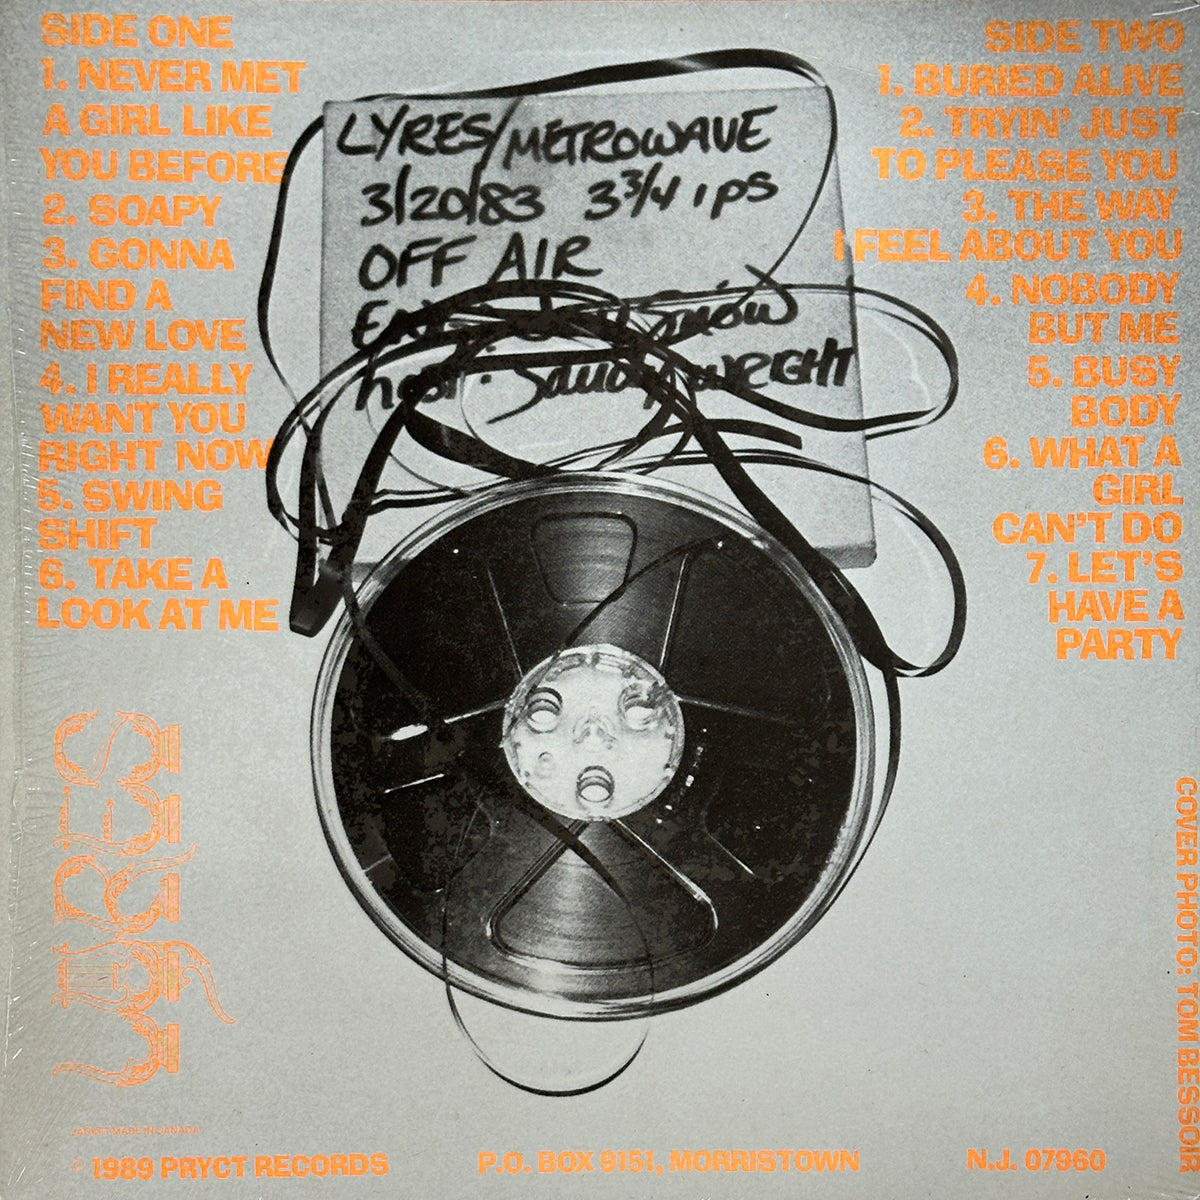 SIDE ONE
1. NEVER MET
A GIRL LIKE
YOU BEFORE
2. SOAPY
3. GONNA
FIND A
NEW LOVE
4. I REALLY
WANT YOU
RIGHT NOW
5. SWING
SHIFT
6. TAKE A
LOOK AT ME
LYRES/METROWAVE
3/20/83 3 3/4 ips
OFF AIR
Snow
host: Sandy WRIGHT
SIDE TWO
1. BURIED ALIVE
2. TRYIN' JUST
TO PLEASE YOU
3. THE WAY
I FEEL ABOUT YOU
4. NOBODY
BUT ME
5. BUSY
BODY
6. WHAT A
GIRL
CAN'T DO
7. LET'S
HAVE A
PARTY
LYRES
COVER PHOTO: TOM BESSOIR
JACKET MADE IN CANADA
© 1989 PRYCT RECORDS P.O. BOX 9151, MORRISTOWN N.J. 07960